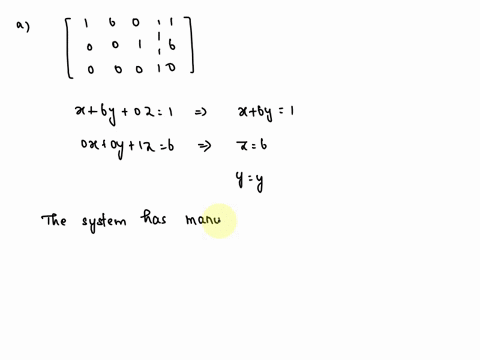 a) [ 1 6 0 ¦ 1
0 0 1 ¦ 6
0 0 0 ¦ 0 ]
x+6y+0z=1 => x+6y=1
0x+0y+1z=6 => z=6
y=y
The system has manu